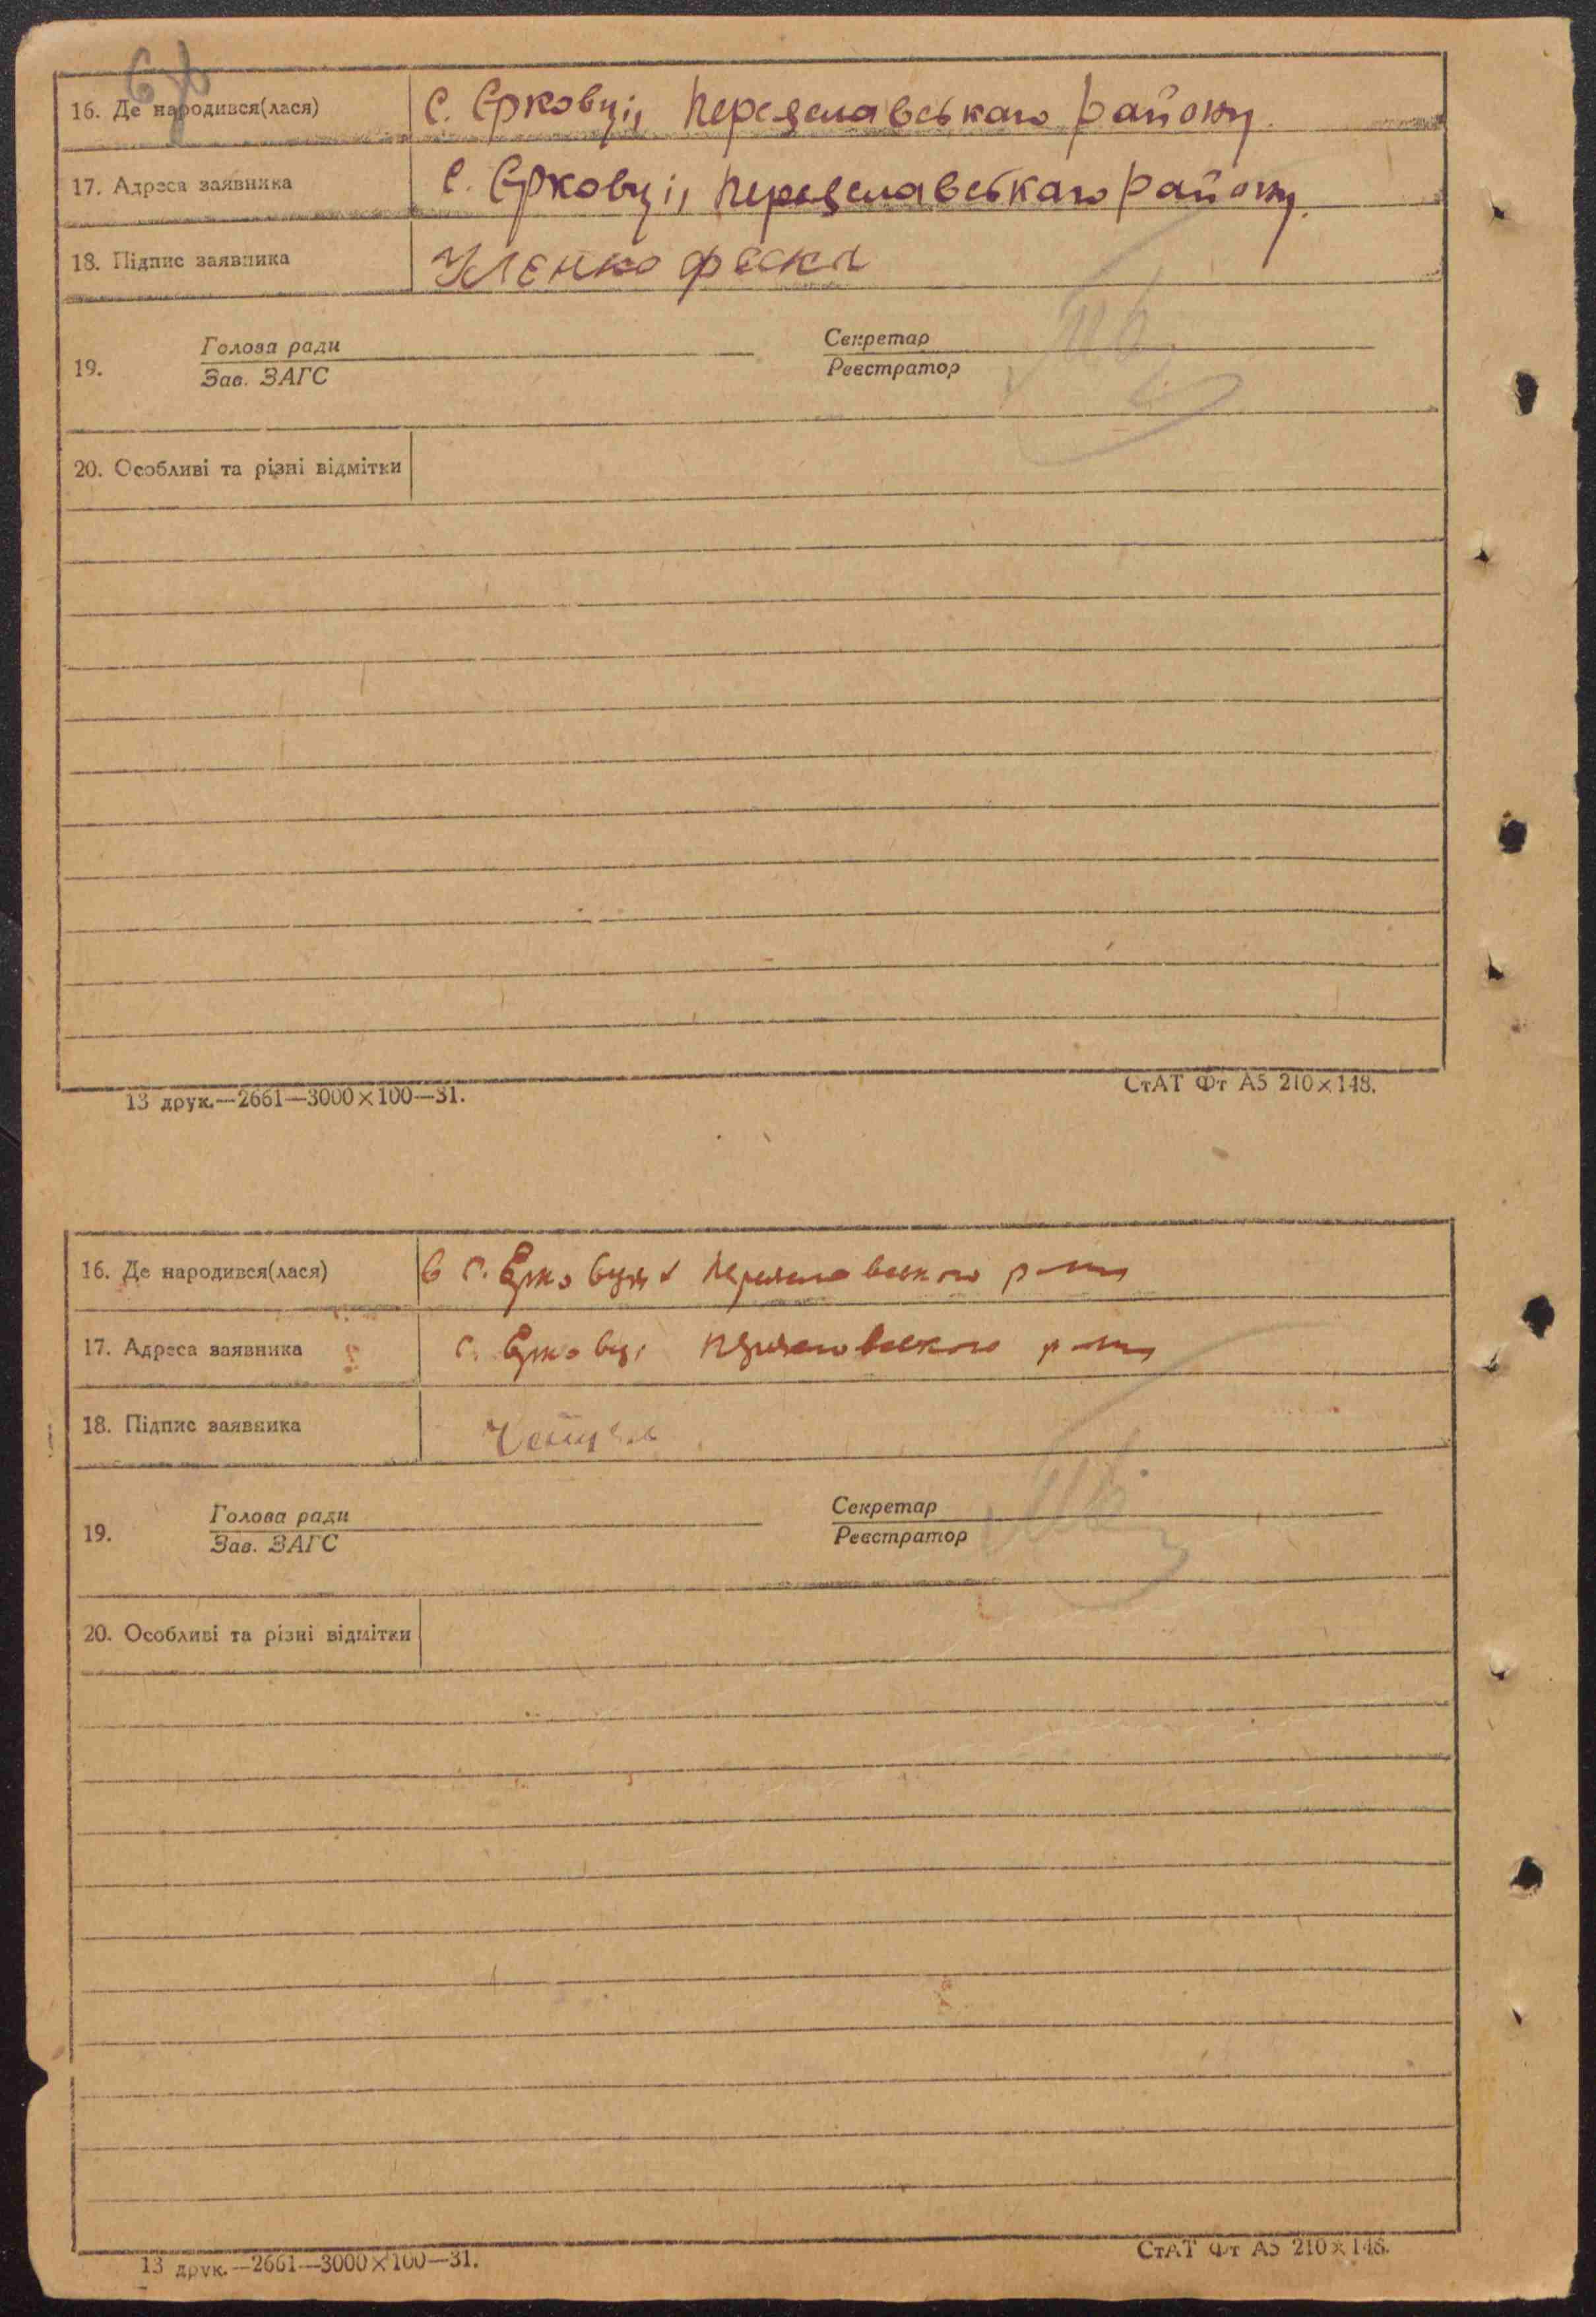 16. Де народився(лася) с. Єрковці, Переяславськаго району.
17. Адреса заявника с. Єрковці, Переяславськаго району.
18. Підпис заявника Уленко Фекл
19. Голова ради Секретар
Зав. ЗАГС Реєстратор
20. Особливі та різні відмітки
13 друк.—2661—3000×100—31. СтАТ Фт А5 210×148.
16. Де народився(лася) в с. Єрковцях Переяславського р-ну
17. Адреса заявника с. Єрковці Переяславського р-ну
18. Підпис заявника
19. Голова ради Секретар
Зав. ЗАГС Реєстратор
20. Особливі та різні відмітки
13 друк.—2661—3000×100—31. СтАТ Фт А5 210×148.